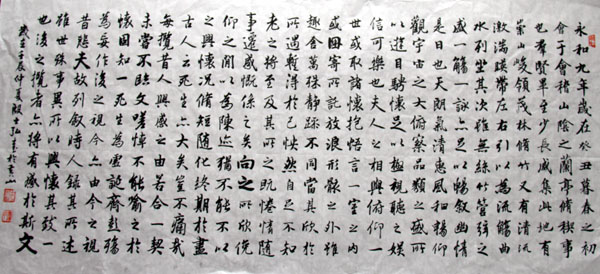 永和九年歲在癸丑暮春之初
會于會稽山陰之蘭亭脩禊事
也羣賢畢至少長咸集此地有
崇山峻領茂林脩竹又有清流
激湍暎帶左右引以為流觴曲
水列坐其次雖無絲竹管弦之
盛一觴一詠亦足以暢敘幽情
是日也天朗氣清惠風和暢仰
觀宇宙之大俯察品類之盛所
以遊目騁懷足以極視聽之娛
信可樂也夫人之相與俯仰一
世或取諸懷抱悟言一室之內
或因寄所託放浪形骸之外雖
趣舍萬殊靜躁不同當其欣於
所遇暫得於己怏然自足不知
老之將至及其所之既惓情隨
事遷感慨係之矣向之所欣俛
仰之間以為陳迹猶不能不以
之興懷況脩短隨化終期於盡
古人云死生亦大矣豈不痛哉
每攬昔人興感之由若合一契
未嘗不臨文嗟悼不能喻之於
懷固知一死生為虛誕齊彭殤
為妄作後之視今亦由今之視
昔悲夫故列敘時人錄其所述
雖世殊事異所以興懷其致一
也後之攬者亦將有感於斯文
歲在壬辰仲夏